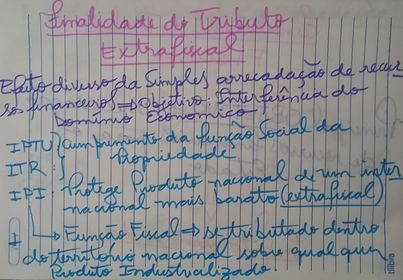 Finalidade do Tributo
Extrafiscal
Efeito diverso da Simples arrecadação de recur-
sos financeiros ⇒ Objetivo: Interferência do
Domínio Econômico
IPTU } Cumprimento da função Social da
ITR : } Propriedade
IPI : Protege Produto nacional de um inter
nacional mais barato (extrafiscal)
↳ Função Fiscal ⇒ se tributado dentro
do território nacional sobre qual quer
Produto Industrializado.
tilibra